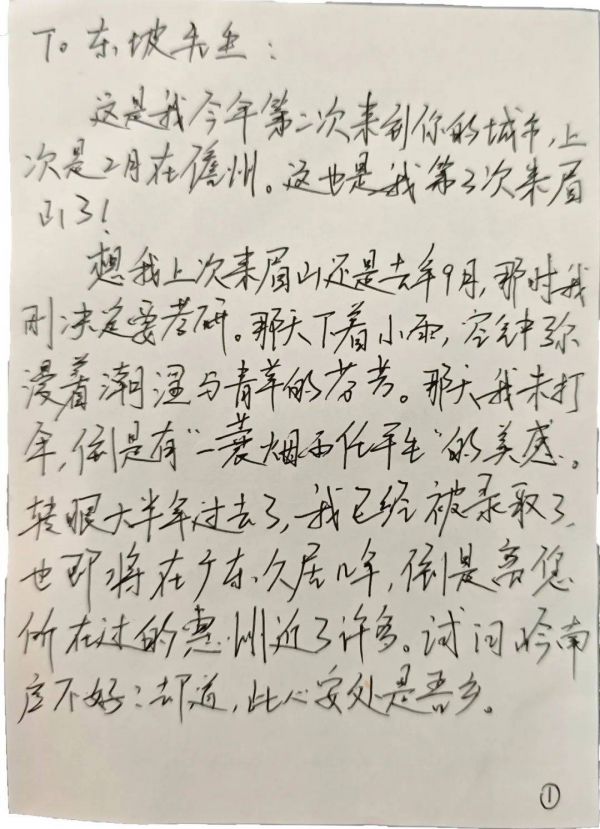 To 东坡先生：
这是我今年第二次来到你的城市，上
次是2月在儋州。这也是我第3次来眉
山了！
想我上次来眉山还是去年9月，那时我
刚决定要考研。那天下着小雨，空气中弥
漫着潮湿与青草的芬芳。那天我未打
伞，倒是有“一蓑烟雨任平生”的美感。
转眼大半年过去了，我已经被录取了，
也即将在广东久居几年，倒是离您
所在过的惠州近了许多。试问岭南
应不好：却道，此心安处是吾乡。
①